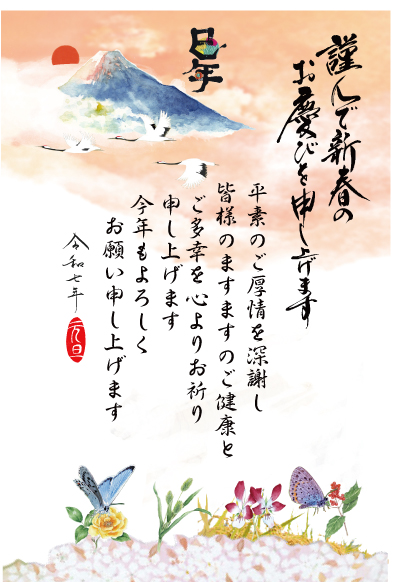 謹んで新春の
お慶びを申し上げます
巳年
平素のご厚情を深謝し
皆様のますますのご健康と
ご多幸を心よりお祈り
申し上げます
今年もよろしく
お願い申し上げます
令和七年
元旦